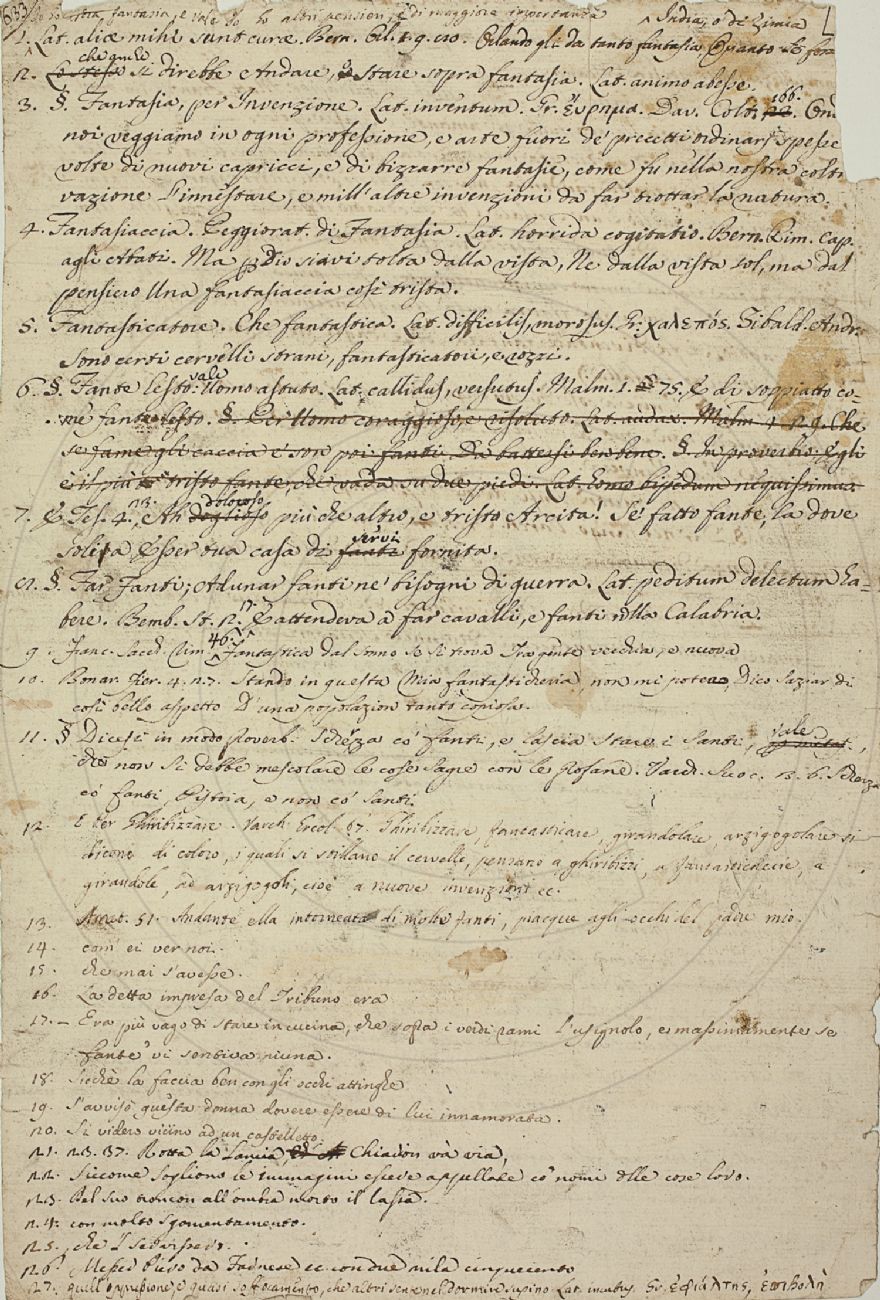 633
fantasia, e vale Io ho altri pensieri, e di maggiore importanza
India, o di Zimia
1. Lat. aliæ mihi sunt curæ. Bern. Orl. 1. 9. 20. Orlando gli da tanto fantasia, Quanto
che quele
2. Lo stesso si direbbe Andare, o Stare sopra fantasia. Lat. animo abesse.
3. §. Fantasia, per Invenzione. Lat. inventum. Gr. εύρημα. Dav. Colt. 166.
noi veggiamo in ogni professione, e arte fuori de' precetti ordinarj spesse
volte di nuovi capricci, e di bizzarre fantasie, come fu nella nostra colti
vazione l'innestare, e mill'altre invenzioni da far trottar la natura.
4. Fantasiaccia. Peggiorat. di Fantasia. Lat. horrida cogitatio. Bern. Rim. cap.
agli Abati. Ma p Dio siavi tolta dalla vista, Ne dalla vista sol, ma dal
pensiero Una fantasiaccia così trista.
5. Fantasticatore. Che fantastica. Lat. difficilis, morosus. Gr. χαλεπός. Tibald. Andr.
Sono certi cervelli strani, fantasticatori, e rozzi.
6. §. Fante lesto. vale Uomo astuto. Lat. callidus, versutus Malm. 1. 75. E di soppiatto co-
me fante lesto. §. Per Uomo coraggioso, e risoluto. Lat. audax. Malm. 1. 2. 9. Che
se fame gli caccia e' son poi fanti Da battersi ben bene. §. In proverbio; Egli
è il più tristo fante, che vada su due piedi. Lat. homo bipedum nequissimus.
7. E Tes. 4. 12. Ah doglioso doloroso più che altro, e tristo Arcita! Se' fatto fante, la dove
solita Esser tua casa di fanti servi fornita.
8. §. Far Fanti; Adunar fanti ne' bisogni di guerra. Lat. peditum delectum ha-
bere. Bemb. St. 2. 17. E attendeva a far cavalli, e fanti nella Calabria.
9. Franc. Sacch. Rim. 46. Fantastica dal sonno so si trova Tra gente vecchia, e nuova
10. Bonar. Fier. 4. 2. 7. Stando in questa Mia fantasticheria, non mi poteo, Dico saziar di
così bello aspetto D'una popolazion tanto copiosa.
11. § Dicesi in modo Proverb. Scherza co' fanti, e lascia stare i Santi, vale
che non si debbe mescolare le cose sagre con le Profane. Varch. Suoc. 2. 6. Scherza
co' fanti, Pistoia, e non co' Santi.
12. E Per Ghiribizzare. Varch Ercol. 57. Ghiribizzare, fantasticare, girandolare, arzigogolare si
dicono di coloro, i quali si stillano il cervello, pensano a ghiribizzi, a fantasticherie, a
girandole, ad arzigogoli, cioè a nuove invenzioni ec.
13. Amet. 51. Andante ella intorneata di molti fanti, piacque agli occhi del padre mio.
14. com' ei ver noi.
15. che mai s'avesse.
16. La detta impresa del Tribuno era
17. - Era più vago di stare in cucina, che sopra i verdi rami l'usignolo, e massimamente se
fante vi sentiva niuna.
18. Sicchè la faccia ben con gli occhi attinghe
19. S'avvisò questa donna dovere essere di lui innamorata.
20. Si videro vicino ad un castelletto.
21. 23. 37. Rotta la Lancia, Chiarion và via,
22. Siccome sogliono le immagini essere appellate co' nomi delle cose loro.
23. Del suo troncon all'ombra morto il lascia.
24. con molto sgomentamento.
25. che
26. Messer Piero da Farnese ec. con due mila cinquecento
27. quell'oppressione, e quasi soffocamento, che altri sente nel dormir supino Lat. incubus. Gr. ἐφιάλτης, ἐπιβολὴ